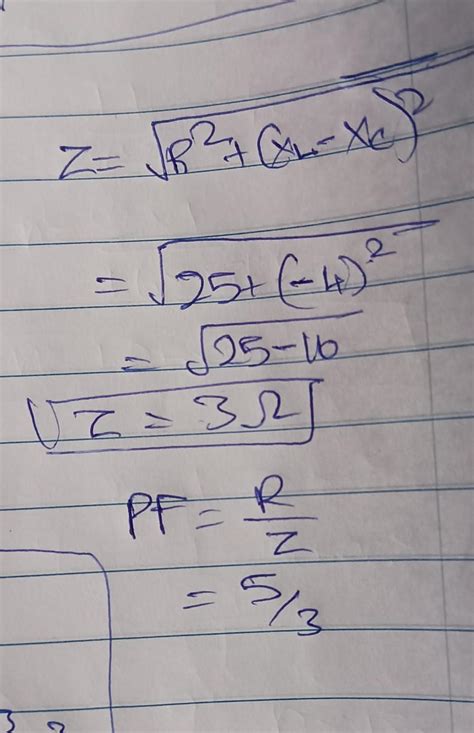 Z = √R² + (XL - XC)²
= √25 + (-4)²
= √25 - 16
Z = 3Ω
PF = R/Z
= 5/3